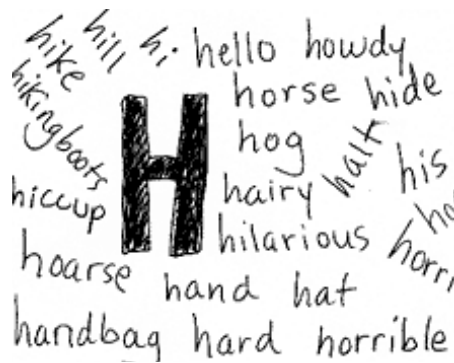 hike hill hi hello howdy
hikingboots horse hide
H hog halt
hiccup hairy his
hilarious
hoarse hand hat
handbag hard horrible